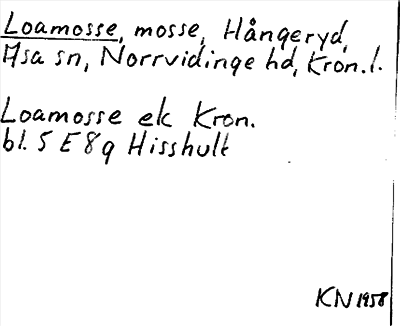 Loamosse, mosse, Hångeryd,
Asa sn, Norrvidinge hd, Kron.l.
Loamosse ek Kron.
bl. 5 E 8g Hisshult
KN 1958